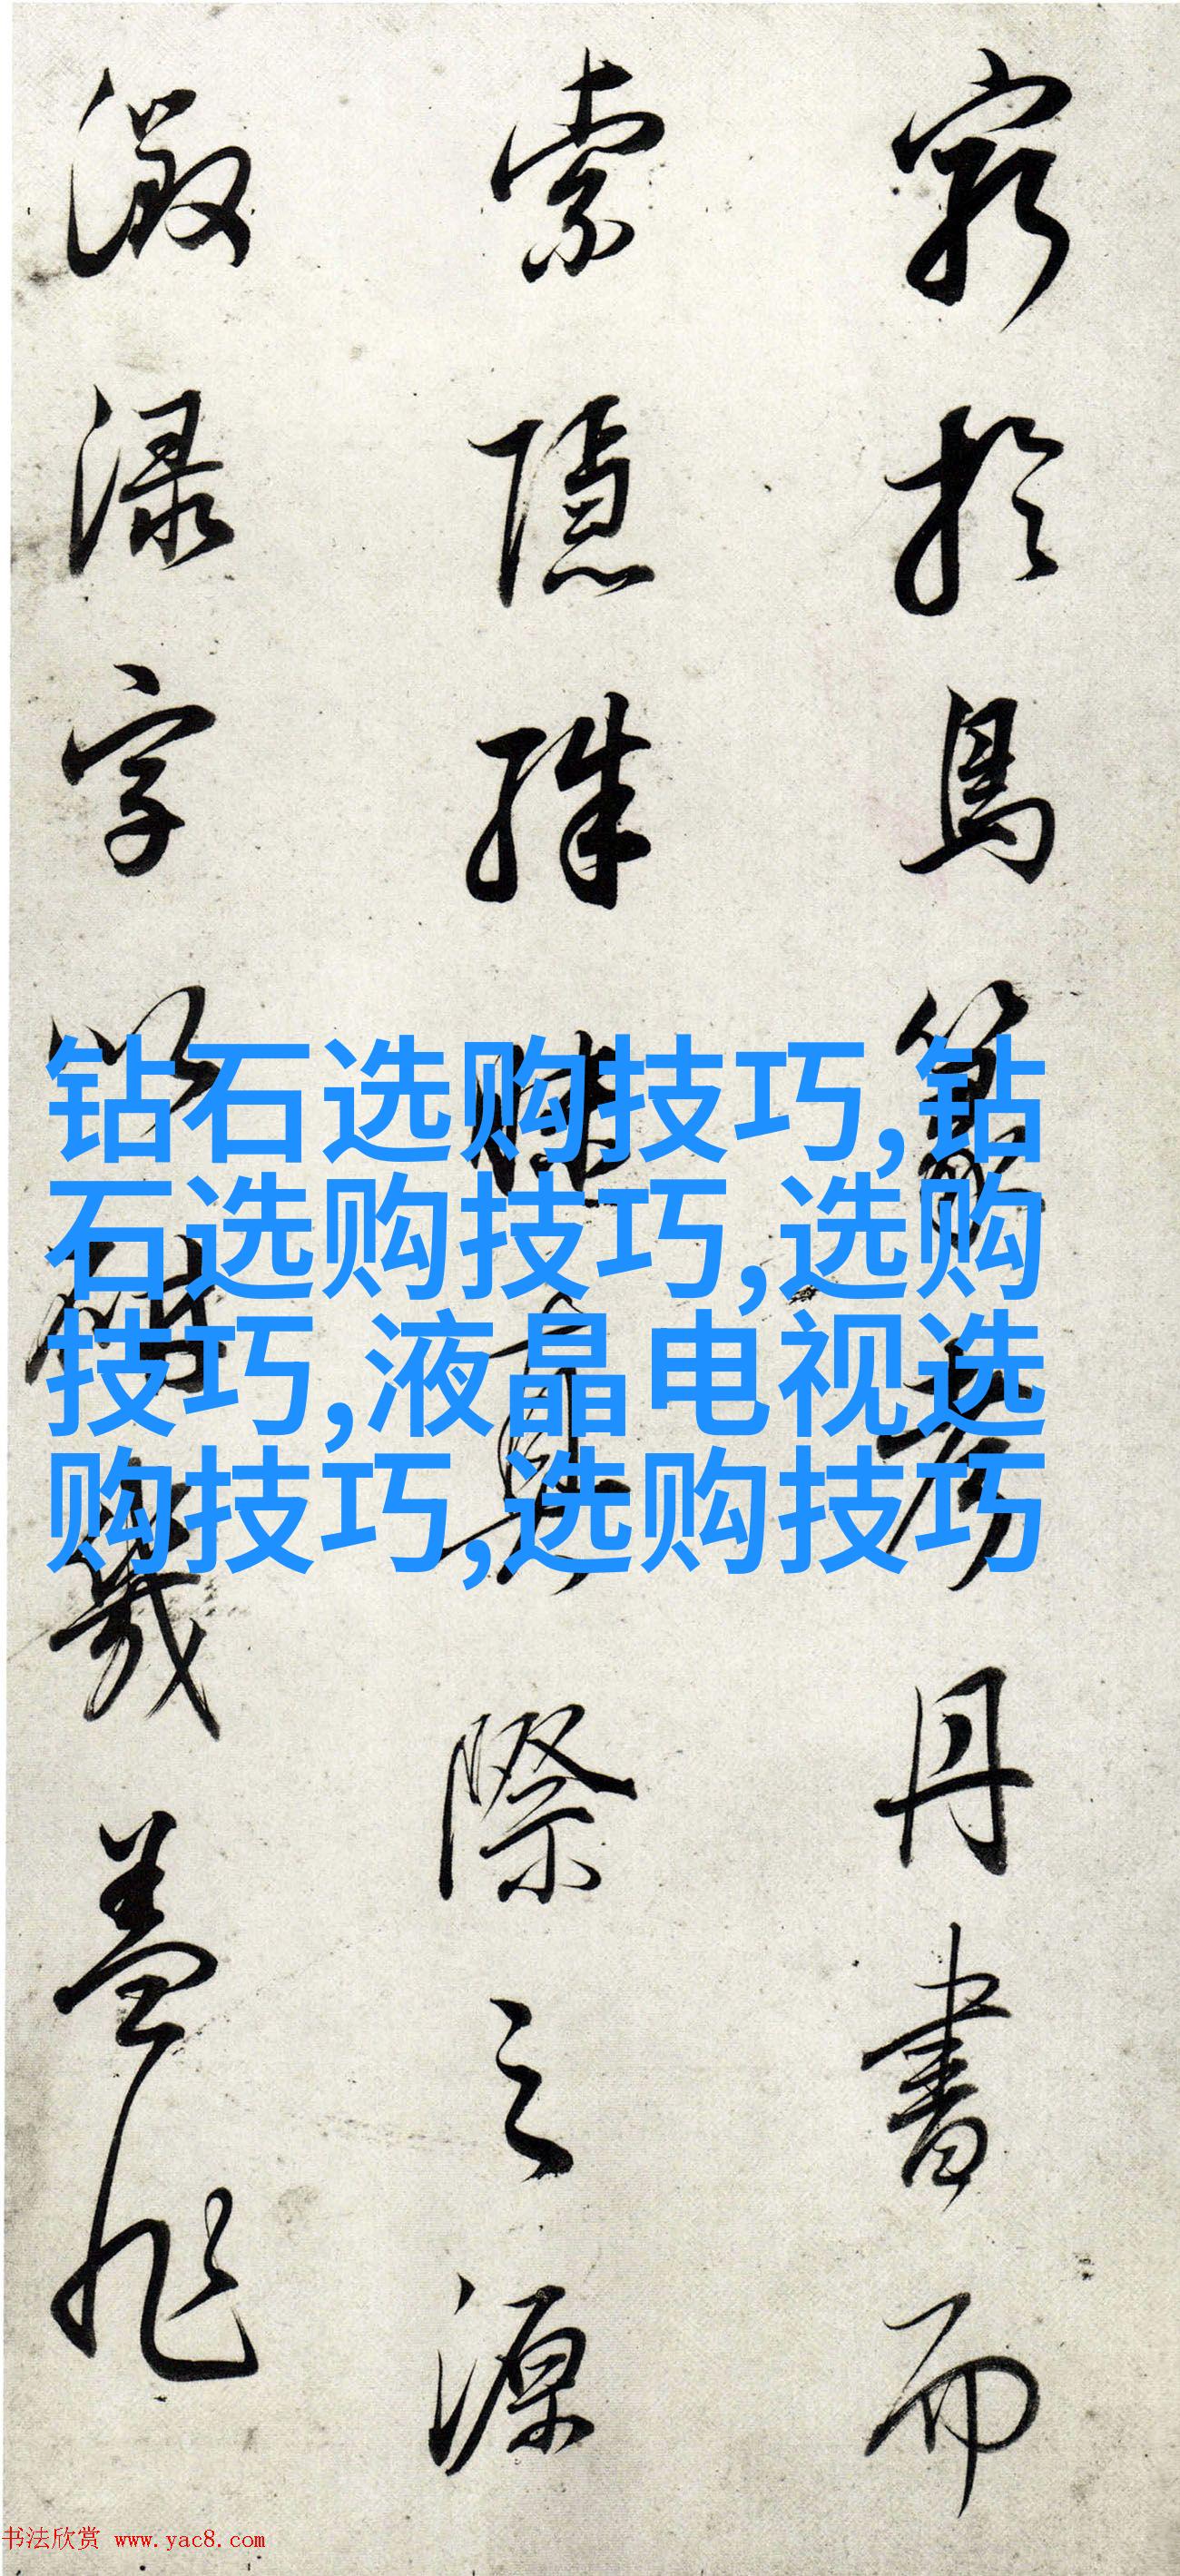 窮於鳥篆考丹書而
索隱殊昧真際之源
激渌字以
蓋非
钻石选购技巧,钻
石选购技巧,选购
技巧,液晶电视选
购技巧,选购技巧
书法欣赏 www.yac8.com